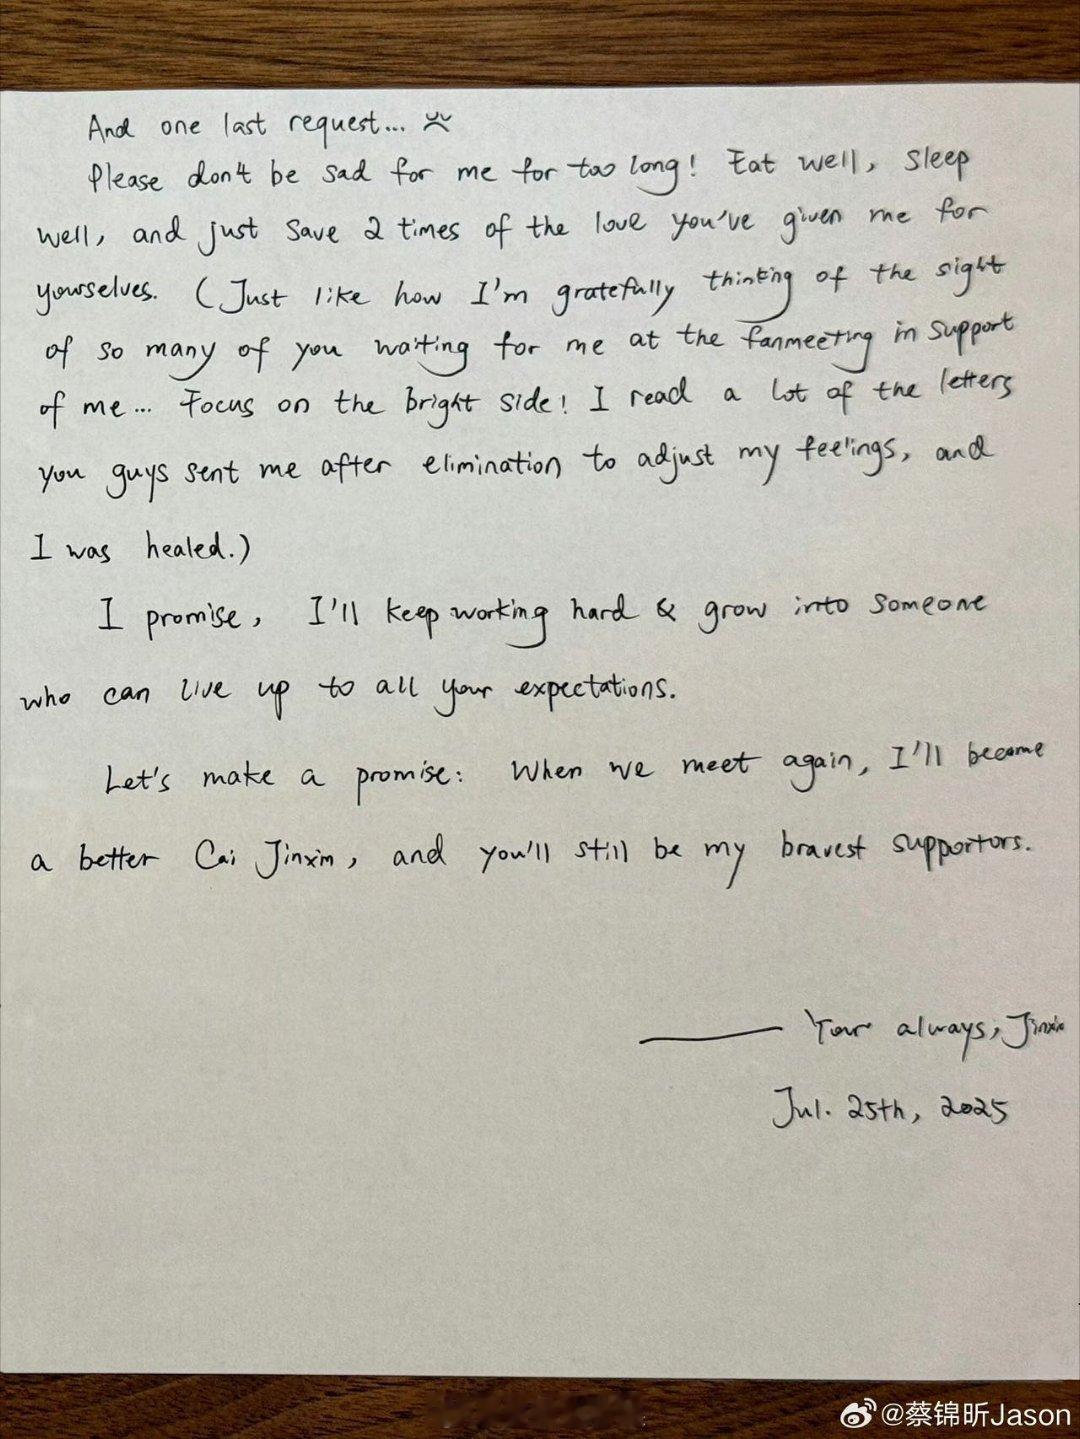 And one last request...
Please don't be sad for me for too long! Eat well, sleep
well, and just save 2 times of the love you've given me for
yourselves. (Just like how I'm gratefully thinking of the sight
of so many of you waiting for me at the fanmeeting in support
of me... Focus on the bright side! I read a lot of the letters
you guys sent me after elimination to adjust my feelings, and
I was healed.)
I promise, I'll keep working hard & grow into someone
who can live up to all your expectations.
Let's make a promise: When we meet again, I'll become
a better Cai Jinxin, and you'll still be my bravest supportors.
—— Your always, Jinxin
Jul. 25th, 2025
@蔡锦昕Jason